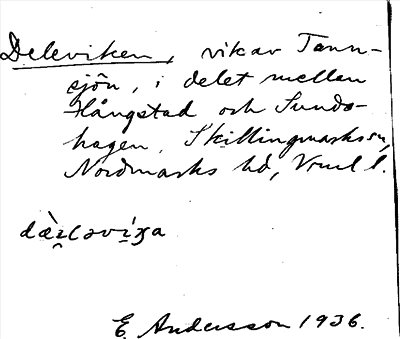 Deleviken, vik av Tann-
sjön, i delet mellan
Hångstad och Sunds-
hagen, Skillingmarks sn,
Nordmarks hd, Vrml l.
E. Andersson 1936.